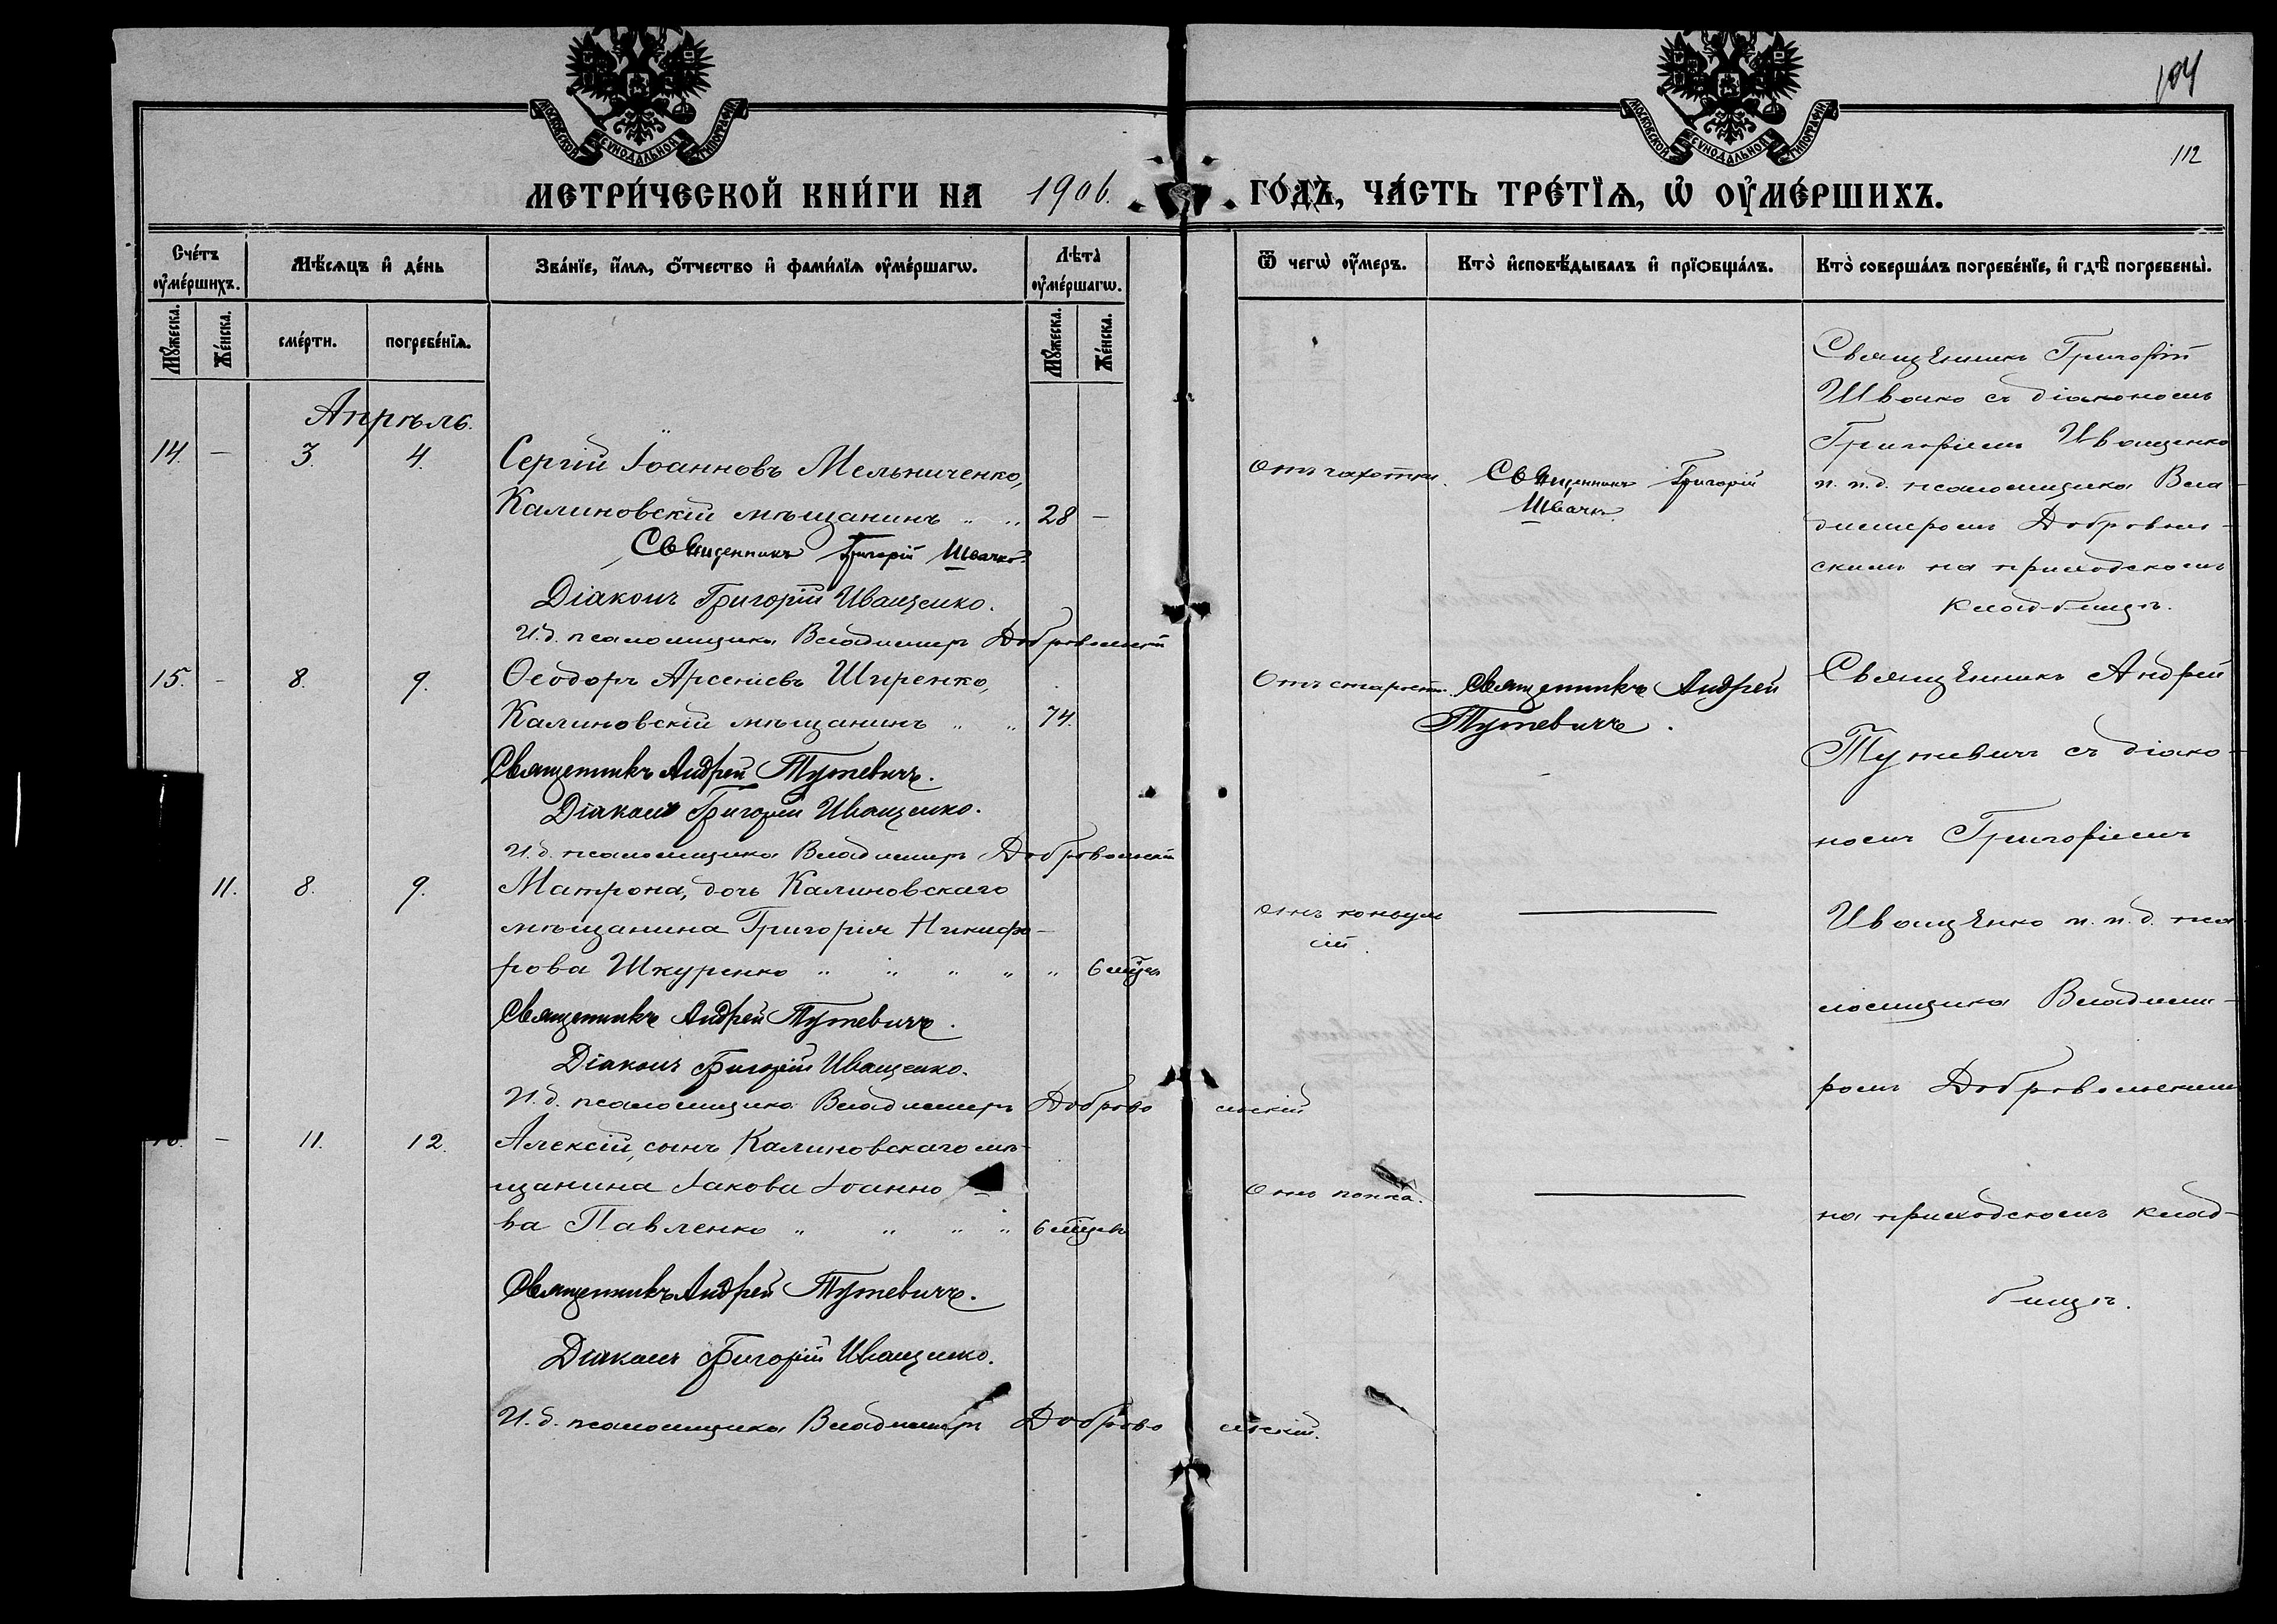 МОСКОВСКОЙ СѴНОДАЛЬНОЙ ТИПОГРАФІИ
МОСКОВСКОЙ СѴНОДАЛЬНОЙ ТИПОГРАФІИ
104
112
МЕТРИ́ЧЕСКОЙ КНИ́ГИ НА 1906. ГО́ДЪ, ЧА́СТЬ ТРЕ́ТЇѦ, Ѡ҆ ОУ҆МЕ́РШИХЪ.
Сче́тъ оу҆ме́ршихъ.
Мѣ́сѧцъ и҆ де́нь
Зва́нїе, и҆́мѧ, ѻ҆́тчество и҆ фами́лїѧ оу҆ме́ршагѡ.
Лѣта̀ оу҆ме́ршагѡ.
Ѿ чегѡ̀ оу҆́меръ.
Кто̀ и҆сповѣ́дывалъ и҆ прїѻбща́лъ.
Кто̀ соверша́лъ погребе́нїе, и҆ гдѣ̀ погребены̀.
Мꙋ́жеска.
Же́нска.
сме́рти.
погребе́нїѧ.
Мꙋ́жеска.
Же́нска.
Апрѣль.
14. – 3. 4. Сергій Іоанновъ Мельниченко,
Калиновскій мѣщанинъ „ „ 28 –
Священникъ Григорій Швачко
Діаконъ Григорій Иващенко.
И. д. псаломщика Владимиръ Добровольскій
Отъ чахотки.
Священникъ Григорій
Швачко
Священникъ Григорій
Швачко съ діакономъ
Григоріемъ Иващенко
и. и. д. псаломщика Вла-
димиромъ Доброволь-
скимъ на приходскомъ
кладбищѣ.
15. – 8. 9. Ѳеодоръ Арсеніевъ Ширенко,
Калиновскій мѣщанинъ „ „ 74.
Священникъ Андрей Тутевичъ.
Діаконъ Григорій Иващенко.
И. д. псаломщика Владимиръ Добровольскій
Отъ старости.
Священникъ Андрей
Тутевичъ.
Священникъ Андрей
Тутевичъ съ діако-
номъ Григоріемъ
Иващенко и. и. д. пса
ломщика Владими-
ромъ Добровольскимъ
на приходскомъ клад-
бищѣ.
11. 8. 9. Матрона, дочь Калиновскаго
мѣщанина Григорія Никифо-
рова Шкуренко „ „ „ „ „ 6 мѣсц.
Священникъ Андрей Тутевичъ.
Діаконъ Григорій Иващенко.
И. д. псаломщика Владимиръ Добровольскій
отъ конвуль
сій.
– 11. 12. Алексій, сынъ Калиновскаго мѣ-
щанина Іакова Іоанно-
ва Павленко „ „ „ „ 6 мѣсц.
Священникъ Андрей Тутевичъ.
Діаконъ Григорій Иващенко.
И. д. псаломщика Владимиръ Добровольскій.